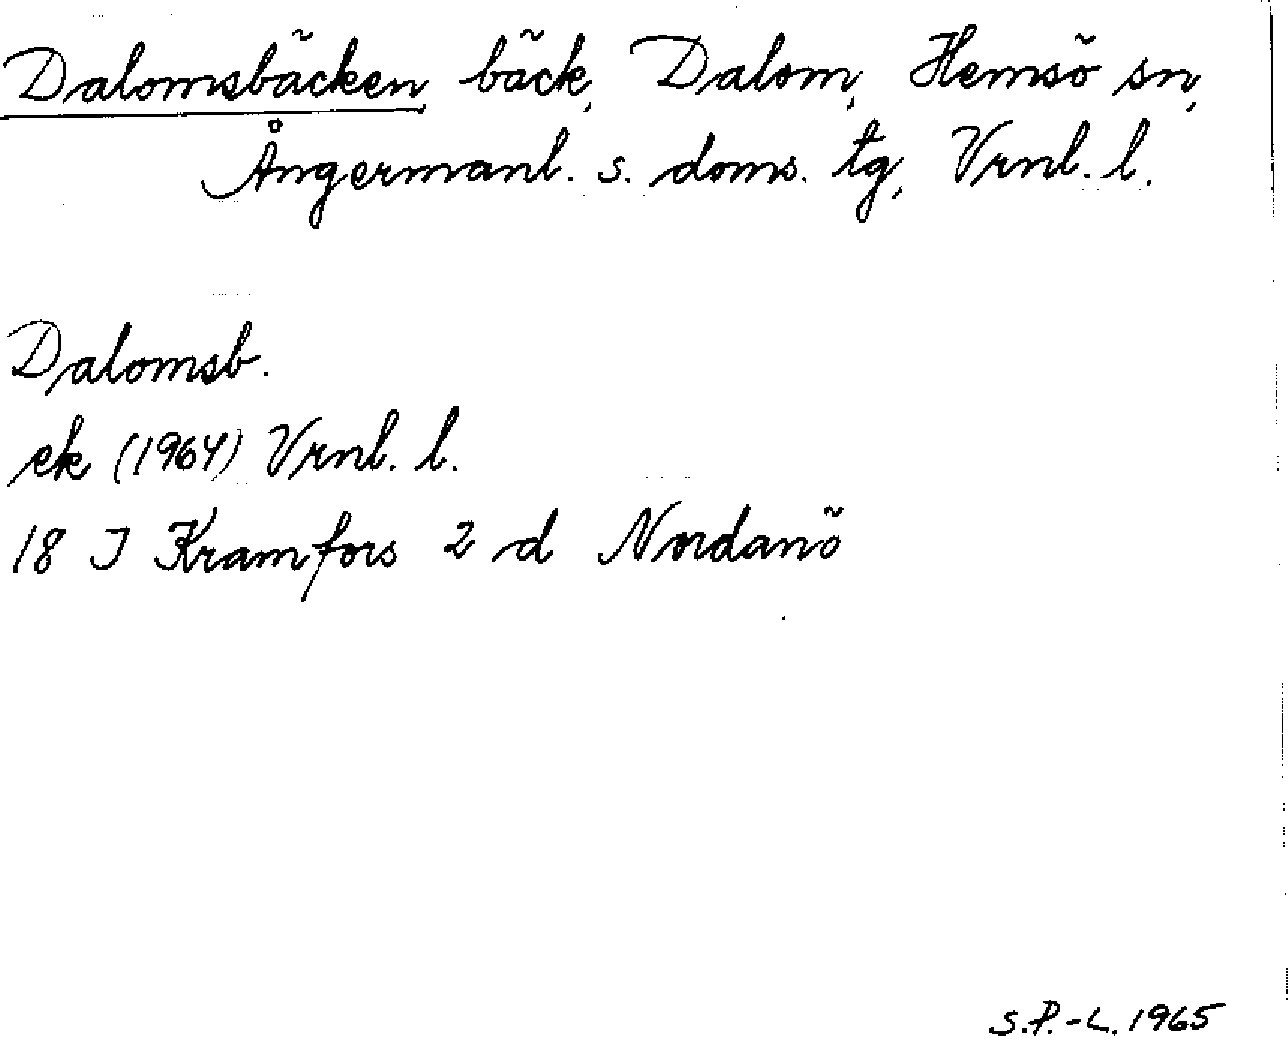 Dalomsbäcken bäck, Dalom, Hemsö sn,
Ångermanl. s. doms. tg, Vrnl. l.
Dalomsb.
ek (1964) Vrnl. l.
18 I Kramfors 2 d Nordanö
S.P.-L. 1965